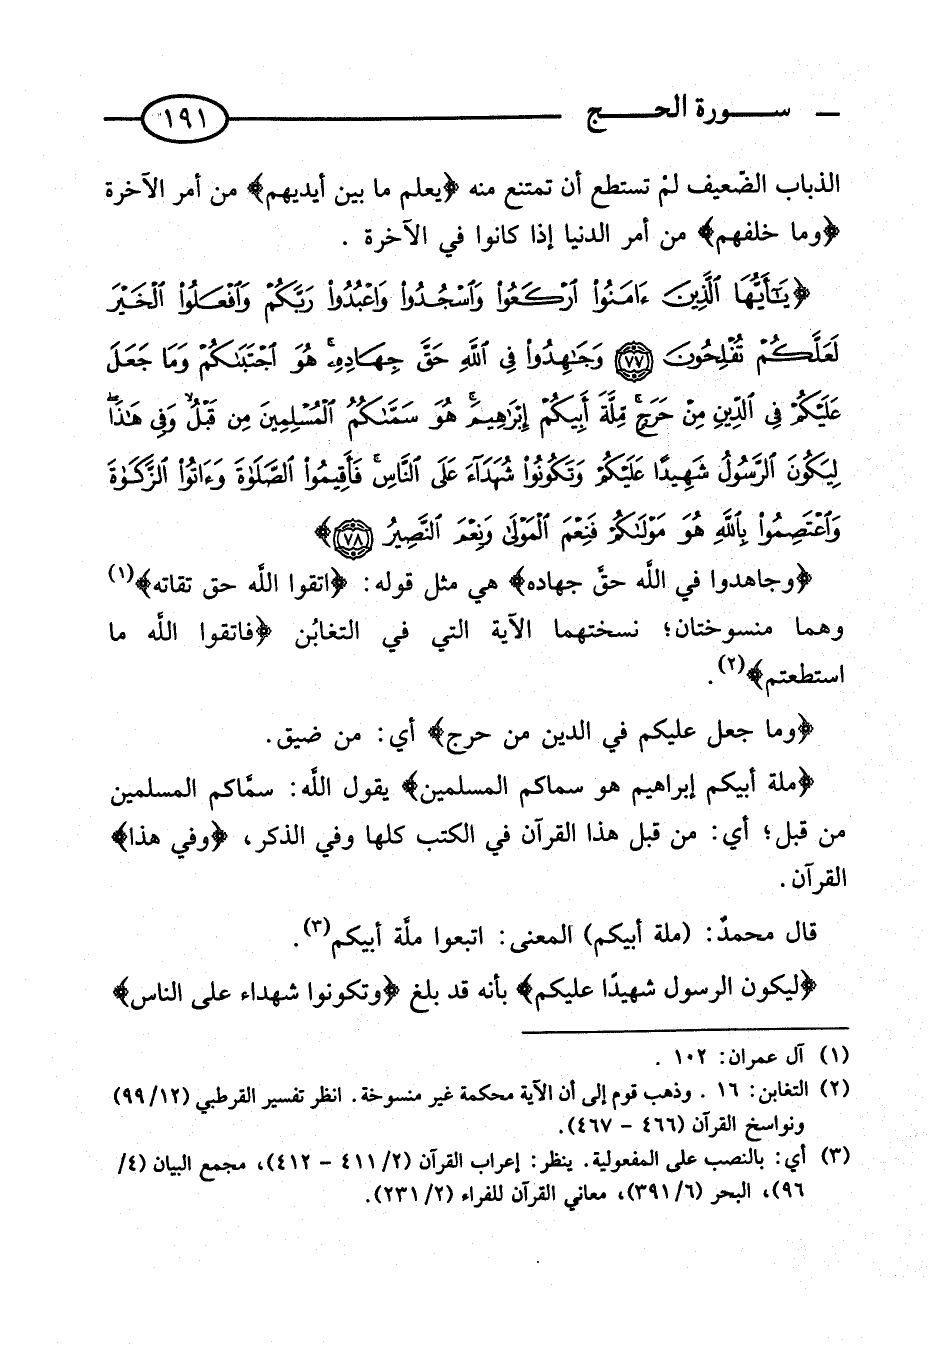 ســـورة الحـــج
١٩١
الذباب الضّعيف لمْ تستطع أن تمتنع منه ﴿يعلم ما بين أيديهم﴾ من أمر الآخرة
﴿وما خلفهم﴾ من أمر الدنيا إذا كانوا في الآخرة .
﴿يَٰٓأَيُّهَا ٱلَّذِينَ ءَامَنُوا۟ ٱرْكَعُوا۟ وَٱسْجُدُوا۟ وَٱعْبُدُوا۟ رَبَّكُمْ وَٱفْعَلُوا۟ ٱلْخَيْرَ
لَعَلَّكُمْ تُفْلِحُونَ ٧٧ وَجَٰهِدُوا۟ فِى ٱللَّهِ حَقَّ جِهَادِهِۦ ۚ هُوَ ٱجْتَبَىٰكُمْ وَمَا جَعَلَ
عَلَيْكُمْ فِى ٱلدِّينِ مِنْ حَرَجٍ ۚ مِّلَّةَ أَبِيكُمْ إِبْرَٰهِيمَ ۚ هُوَ سَمَّىٰكُمُ ٱلْمُسْلِمِينَ مِن قَبْلُ وَفِى هَٰذَا
لِيَكُونَ ٱلرَّسُولُ شَهِيدًا عَلَيْكُمْ وَتَكُونُوا۟ شُهَدَآءَ عَلَى ٱلنَّاسِ ۚ فَأَقِيمُوا۟ ٱلصَّلَوٰةَ وَءَاتُوا۟ ٱلزَّكَوٰةَ
وَٱعْتَصِمُوا۟ بِٱللَّهِ هُوَ مَوْلَىٰكُمْ فَنِعْمَ ٱلْمَوْلَىٰ وَنِعْمَ ٱلنَّصِيرُ ٧٨﴾
﴿وجاهدوا في اللَّه حقَّ جهاده﴾ هي مثل قوله: ﴿اتقوا اللَّه حق تقاته﴾(١)
وهما منسوختان؛ نسختهما الآية التي في التغابُن ﴿فاتقوا اللَّه ما
استطعتم﴾(٢).
﴿وما جعل عليكم في الدين من حرج﴾ أي: من ضيق.
﴿ملة أبيكم إبراهيم هو سماكم المسلمين﴾ يقول اللَّه: سمَّاكم المسلمين
من قبل؛ أي: من قبل هذا القرآن في الكتب كلها وفي الذكر، ﴿وفي هذا﴾
القرآن.
قال محمدٌ: (ملة أبيكم) المعنى: اتبعوا ملَّة أبيكم(٣).
﴿ليكون الرسول شهيدًا عليكم﴾ بأنه قد بلغ ﴿وتكونوا شهداء على الناس﴾
(١) آل عمران: ١٠٢ .
(٢) التغابن: ١٦ . وذهب قوم إلى أن الآية محكمة غير منسوخة. انظر تفسير القرطبي (٩٩/١٢)
ونواسخ القرآن (٤٦٦ - ٤٦٧).
(٣) أي: بالنصب على المفعولية. ينظر: إعراب القرآن (٤١١/٢ - ٤١٢)، مجمع البيان (٤/
٩٦)، البحر (٣٩١/٦)، معاني القرآن للفراء (٢٣١/٢).